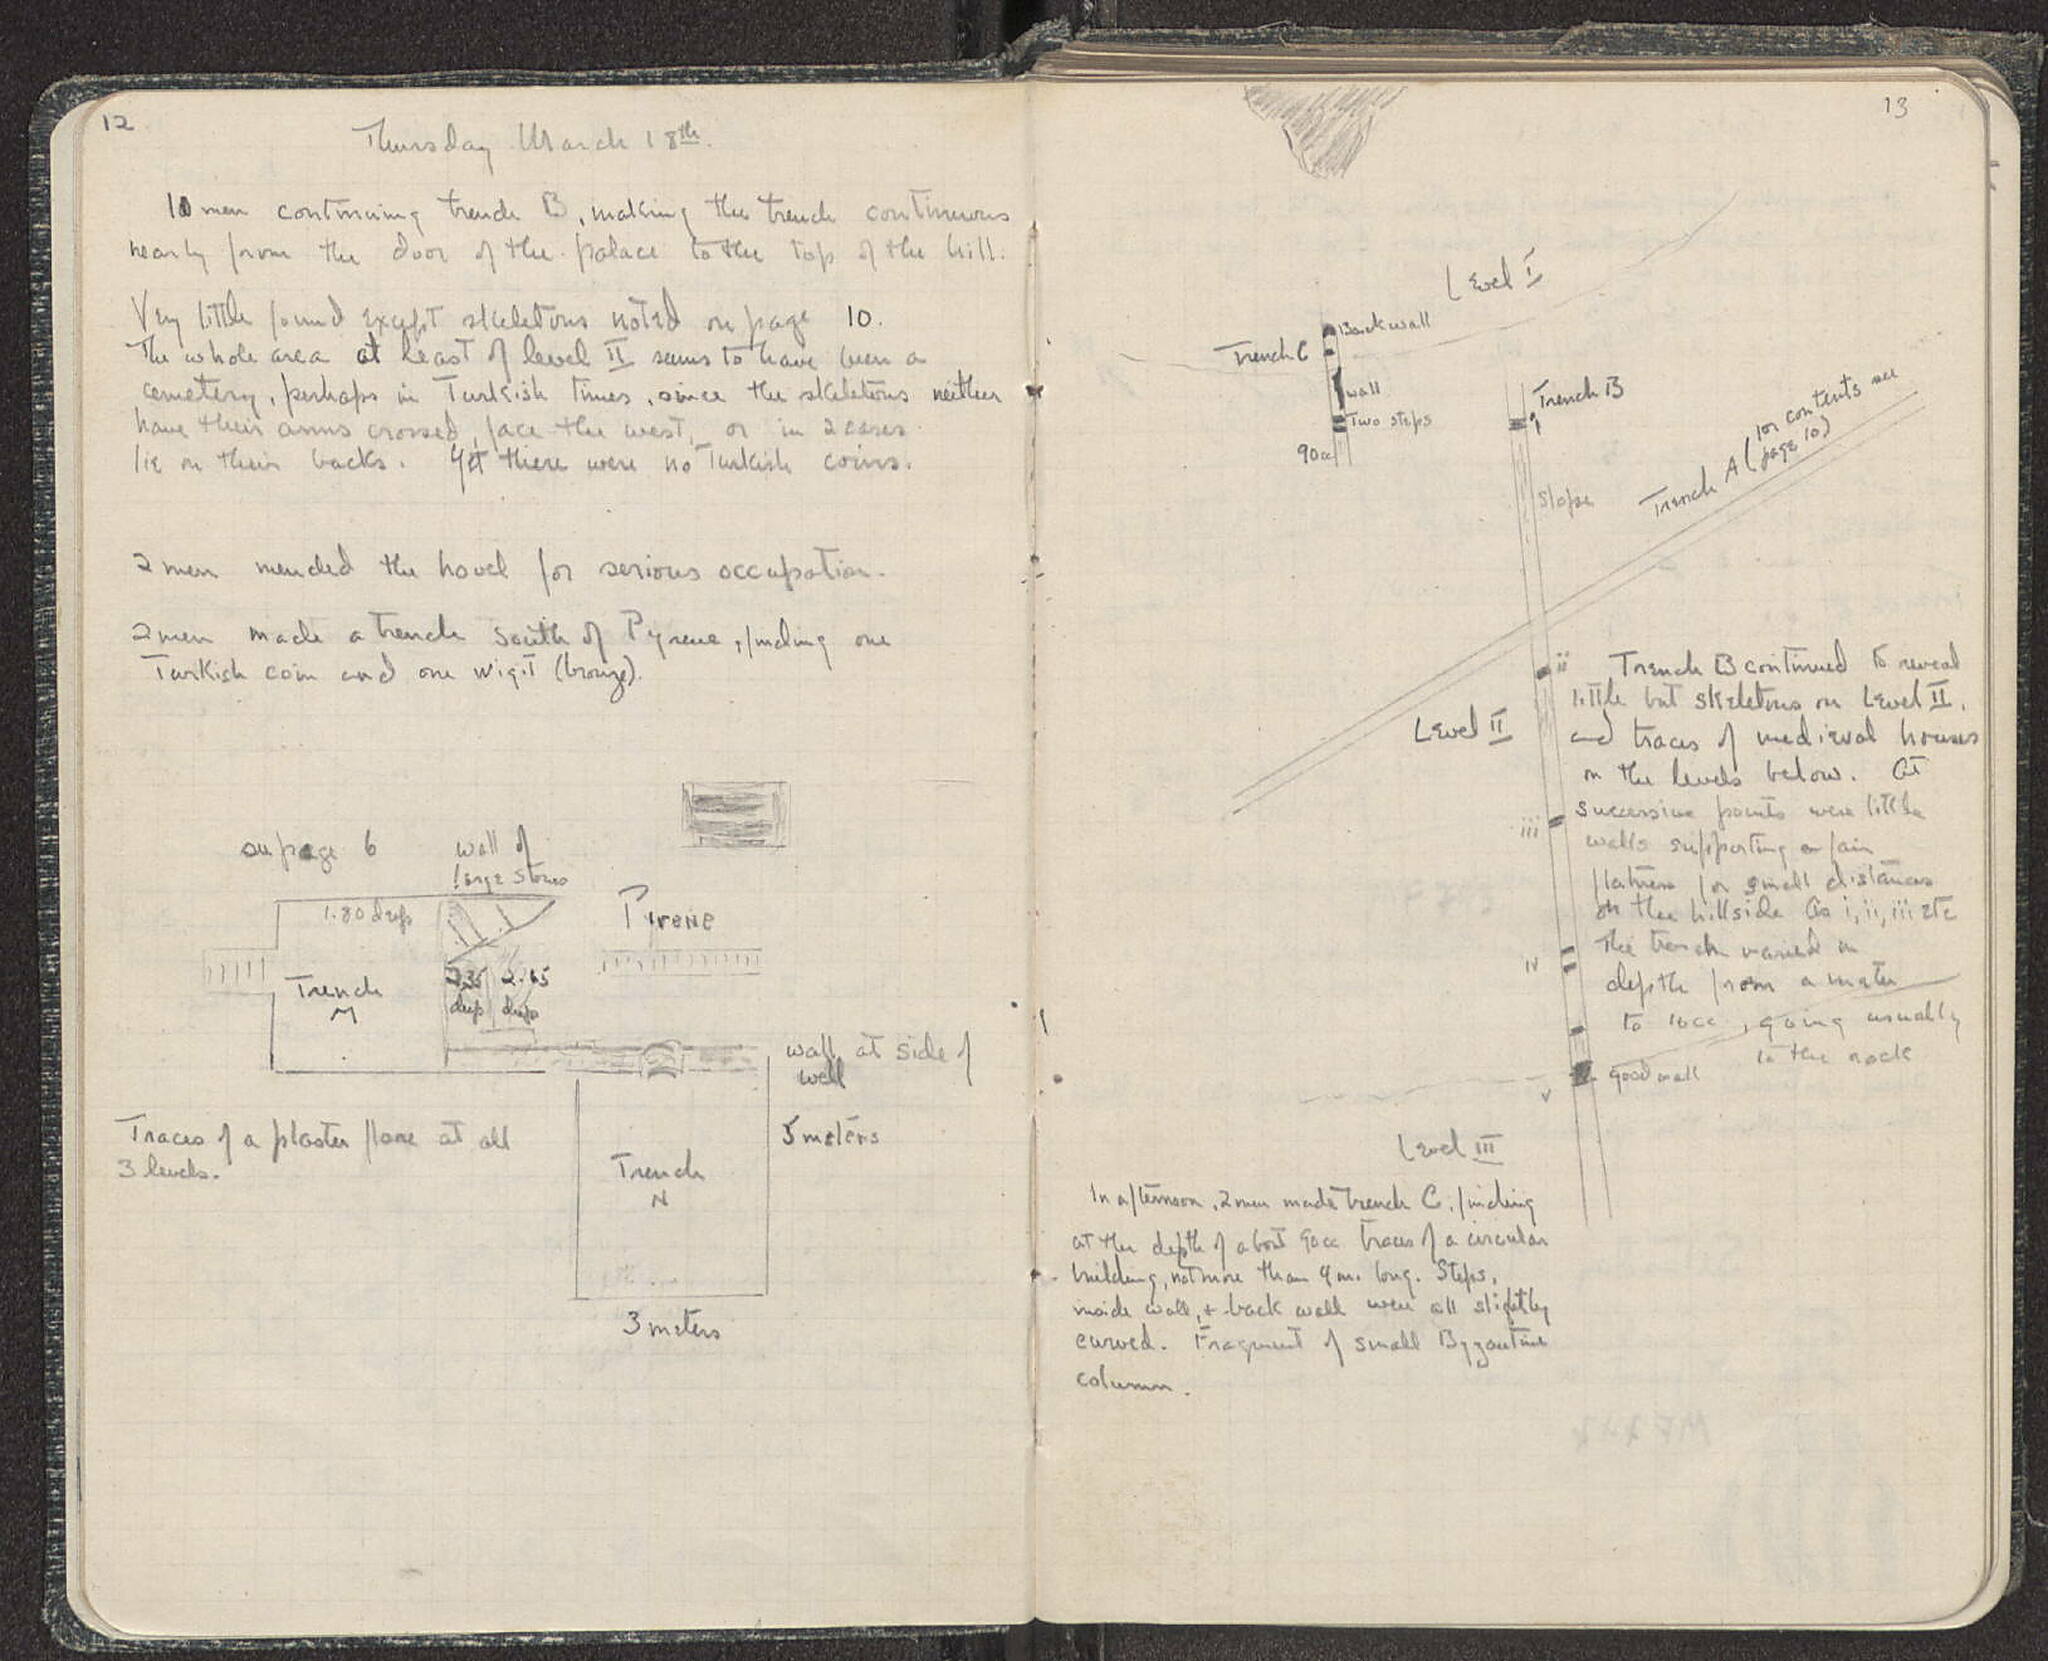 12
Thursday March 18th.
10 men continuing trench B, making the trench continuous
nearly from the door of the palace to the top of the hill.
Very little found except skeletons noted on page 10.
The whole area at least of level II seems to have been a
cemetery, perhaps in Turkish times, since the skeletons neither
have their arms crossed, face the west, or in 2 cases
lie on their backs. Yet there were no Turkish coins.
2 men mended the hovel for serious occupation.
2 men made a trench south of Pyrene, finding one
Turkish coin and one wigit (bronze).
on page 6
wall of
large stones
1.80 deep
Pyrene
Trench
M
2.35
deep
2.15
deep
wall at side of
well
Traces of a plaster floor at all
3 levels.
5 meters
Trench
N
3 meters
13
Level I
Back wall
Trench C
wall
Two steps
90cc
Trench B
i
Slope
Trench A (for contents see
page 10)
ii
Trench B continued to reveal
little but skeletons on Level II.
and traces of medieval houses
on the levels below. At
successive points were little
walls supporting
platforms for small distances
on the hillside as i, ii, iii etc
The trench varied in
depth from a meter
to 10cc, going usually
to the rock
Level II
iii
iv
Good wall
v
Level III
In afternoon, 2 men made trench C, finding
at the depth of about 90cc traces of a circular
building, not more than 4m. long. Steps,
inside wall, + back wall were all slightly
curved. Fragment of small Byzantine
column.